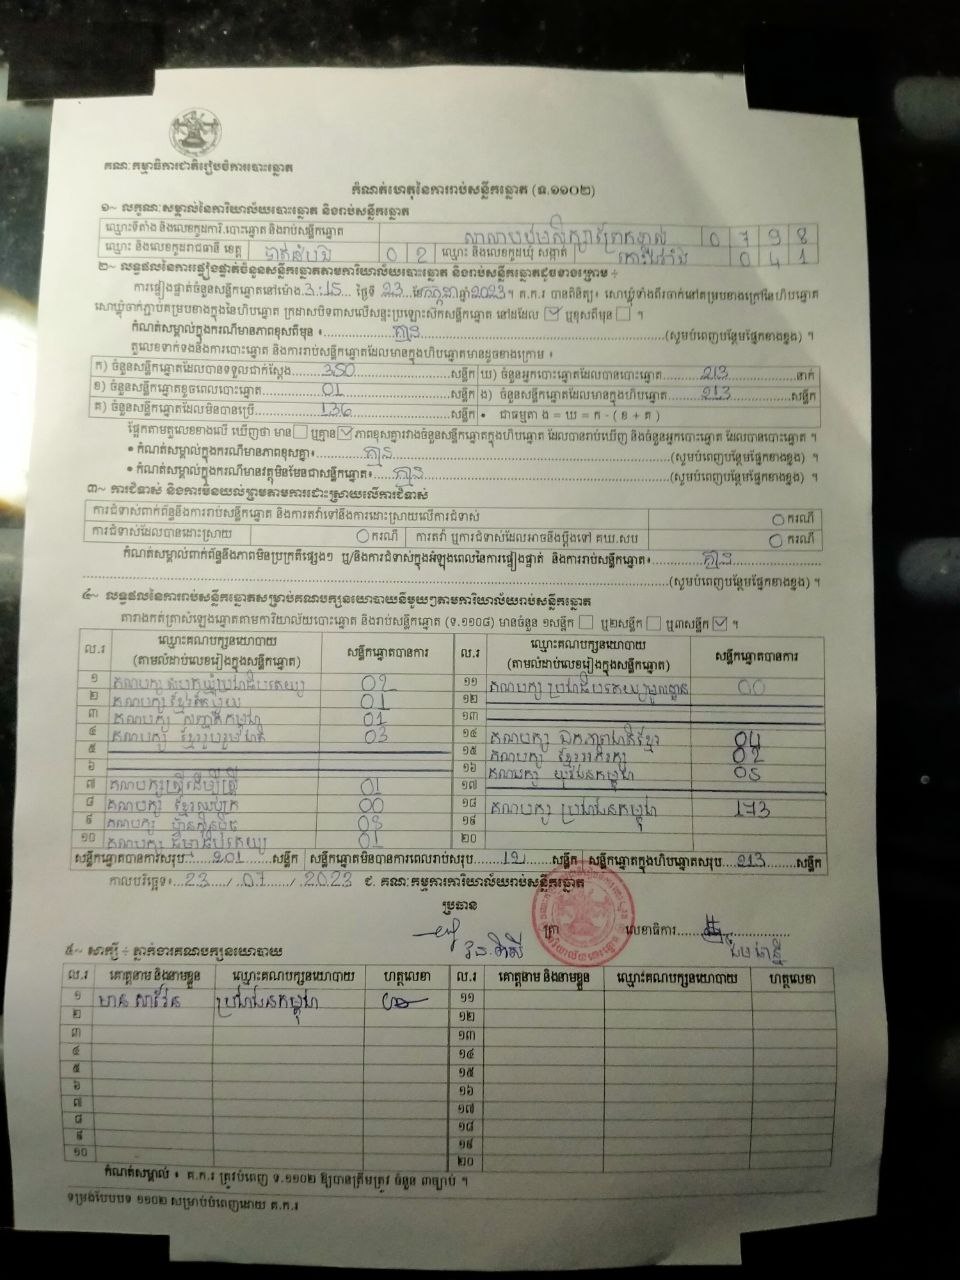 គណៈកម្មាធិការជាតិរៀបចំការបោះឆ្នោត
កំណត់ហេតុនៃការរាប់សន្លឹកឆ្នោត (ទ.១១០២)
១~ លក្ខណៈសម្គាល់នៃការិយាល័យបោះឆ្នោត និងរាប់សន្លឹកឆ្នោត
ឈ្មោះទីតាំង និងលេខកូដការិ.បោះឆ្នោត និងរាប់សន្លឹកឆ្នោត 0 7 9 8
ឈ្មោះ និងលេខកូដរាជធានី ខេត្ត បាត់ដំបង 0 2 ឈ្មោះ និងលេខកូដឃុំ សង្កាត់ 0 4 1
២~ លទ្ធផលនៃការផ្ទៀងផ្ទាត់ចំនួនសន្លឹកឆ្នោតតាមការិយាល័យបោះឆ្នោត និងរាប់សន្លឹកឆ្នោតដូចខាងក្រោម ÷
ការផ្ទៀងផ្ទាត់ចំនួនសន្លឹកឆ្នោតនៅម៉ោង 3:15 ថ្ងៃទី 23 ខែកក្កដាឆ្នាំ2023។ គ.ក.រ បានពិនិត្យ៖ សោឃ្លុំទាំងពីរចាក់នៅគម្របខាងក្រៅនៃហិបឆ្នោត
សោឃ្លុំចាក់ភ្ជាប់គម្របខាងក្នុងនៃហិបឆ្នោត ក្រដាសបិទពាសលើសន្ទះប្រឡោះស៊កសន្លឹកឆ្នោត នៅដដែល ☑ ឬខុសពីមុន ☐ ។
កំណត់សម្គាល់ក្នុងករណីមានភាពខុសពីមុន ៖ គ្មាន (សូមបំពេញបន្ថែមផ្នែកខាងខ្នង) ។
តួលេខទាក់ទងនឹងការបោះឆ្នោត និងការរាប់សន្លឹកឆ្នោតដែលមានក្នុងហិបឆ្នោតមានដូចខាងក្រោម ៖
ក) ចំនួនសន្លឹកឆ្នោតដែលបានទទួលជាក់ស្តែង 350 សន្លឹក ឃ) ចំនួនអ្នកបោះឆ្នោតដែលបានបោះឆ្នោត 213 នាក់
ខ) ចំនួនសន្លឹកឆ្នោតខូចពេលបោះឆ្នោត 01 សន្លឹក ង) ចំនួនសន្លឹកឆ្នោតដែលមានក្នុងហិបឆ្នោត 213 សន្លឹក
គ) ចំនួនសន្លឹកឆ្នោតដែលមិនបានប្រើ 136 សន្លឹក • ជាធម្មតា ង = ឃ = ក - ( ខ + គ )
ផ្អែកតាមតួលេខខាងលើ ឃើញថា មាន ☐ ឬគ្មាន ☑ ភាពខុសគ្នារវាងចំនួនសន្លឹកឆ្នោតក្នុងហិបឆ្នោត ដែលបានរាប់ឃើញ និងចំនួនអ្នកបោះឆ្នោត ដែលបានបោះឆ្នោត ។
• កំណត់សម្គាល់ក្នុងករណីមានភាពខុសគ្នា៖ គ្មាន (សូមបំពេញបន្ថែមផ្នែកខាងខ្នង) ។
• កំណត់សម្គាល់ក្នុងករណីមានវត្ថុមិនមែនជាសន្លឹកឆ្នោត៖ គ្មាន (សូមបំពេញបន្ថែមផ្នែកខាងខ្នង) ។
៣~ ការជំទាស់ និងការមិនយល់ព្រមតាមការដោះស្រាយលើការជំទាស់
ការជំទាស់ពាក់ព័ន្ធនឹងការរាប់សន្លឹកឆ្នោត និងការតវ៉ាទៅនឹងការដោះស្រាយលើការជំទាស់ 0 ករណី
ការជំទាស់ដែលបានដោះស្រាយ 0 ករណី ការតវ៉ា ឬការជំទាស់ដែលអាចនឹងប្តឹងទៅ គឃ.សប 0 ករណី
កំណត់សម្គាល់ពាក់ព័ន្ធនឹងភាពមិនប្រក្រតីផ្សេងៗ ឬ/និងការជំទាស់ក្នុងអំឡុងពេលនៃការផ្ទៀងផ្ទាត់ និងការរាប់សន្លឹកឆ្នោត៖ គ្មាន
(សូមបំពេញបន្ថែមផ្នែកខាងខ្នង) ។
៤~ លទ្ធផលនៃការរាប់សន្លឹកឆ្នោតសម្រាប់គណបក្សនយោបាយនីមួយៗតាមការិយាល័យរាប់សន្លឹកឆ្នោត
តារាងកត់ត្រាសំឡេងឆ្នោតតាមការិយាល័យបោះឆ្នោត និងរាប់សន្លឹកឆ្នោត (ទ.១១០៨) មានចំនួន ១សន្លឹក ☐ ឬ២សន្លឹក ☐ ឬ៣សន្លឹក ☑ ។
ល.រ ឈ្មោះគណបក្សនយោបាយ (តាមលំដាប់លេខរៀងក្នុងសន្លឹកឆ្នោត) សន្លឹកឆ្នោតបានការ ល.រ ឈ្មោះគណបក្សនយោបាយ (តាមលំដាប់លេខរៀងក្នុងសន្លឹកឆ្នោត) សន្លឹកឆ្នោតបានការ
១ គណបក្ស សំបុកឃ្មុំប្រជាធិបតេយ្យ 02 ១១ គណបក្ស ប្រជាធិបតេយ្យមូលដ្ឋាន 00
២ គណបក្ស ខ្មែរតែមួយ 01 ១២
៣ គណបក្ស សញ្ជាតិកម្ពុជា 01 ១៣
៤ គណបក្ស ខ្មែររួបរួមជាតិ 03 ១៤ គណបក្ស ឯកភាពជាតិខ្មែរ 04
៥ ១៥ គណបក្ស ខ្មែរអភិរក្ស 02
៦ ១៦ គណបក្ស យុវជនកម្ពុជា 05
៧ គណបក្សស្ត្រីដើម្បីស្ត្រី 01 ១៧
៨ គណបក្ស ខ្មែរឈប់ក្រ 00 ១៨ គណបក្ស ប្រជាជនកម្ពុជា 173
៩ គណបក្ស ហ៊្វុនស៊ិនប៉ិច 08 ១៩
១០ គណបក្ស ធម្មាធិបតេយ្យ 01 ២០
សន្លឹកឆ្នោតបានការសរុប 201 សន្លឹក សន្លឹកឆ្នោតមិនបានការពេលរាប់សរុប 12 សន្លឹក សន្លឹកឆ្នោតក្នុងហិបឆ្នោតសរុប 213 សន្លឹក
កាលបរិច្ឆេទ៖ 23 / 07 / 2023 ជ. គណៈកម្មការការិយាល័យរាប់សន្លឹកឆ្នោត
ប្រធាន
ត្រា លេខាធិការ
៥~ សាក្សី ÷ ភ្នាក់ងារគណបក្សនយោបាយ
ល.រ គោត្តនាម និងនាមខ្លួន ឈ្មោះគណបក្សនយោបាយ ហត្ថលេខា ល.រ គោត្តនាម និងនាមខ្លួន ឈ្មោះគណបក្សនយោបាយ ហត្ថលេខា
១ ប្រជាជនកម្ពុជា ១១
២ ១២
៣ ១៣
៤ ១៤
៥ ១៥
៦ ១៦
៧ ១៧
៨ ១៨
៩ ១៩
១០ ២០
កំណត់សម្គាល់ ៖ គ.ក.រ ត្រូវបំពេញ ទ.១១០២ ឱ្យបានត្រឹមត្រូវ ចំនួន ៣ច្បាប់ ។
ទម្រង់បែបបទ ១១០២ សម្រាប់បំពេញដោយ គ.ក.រ